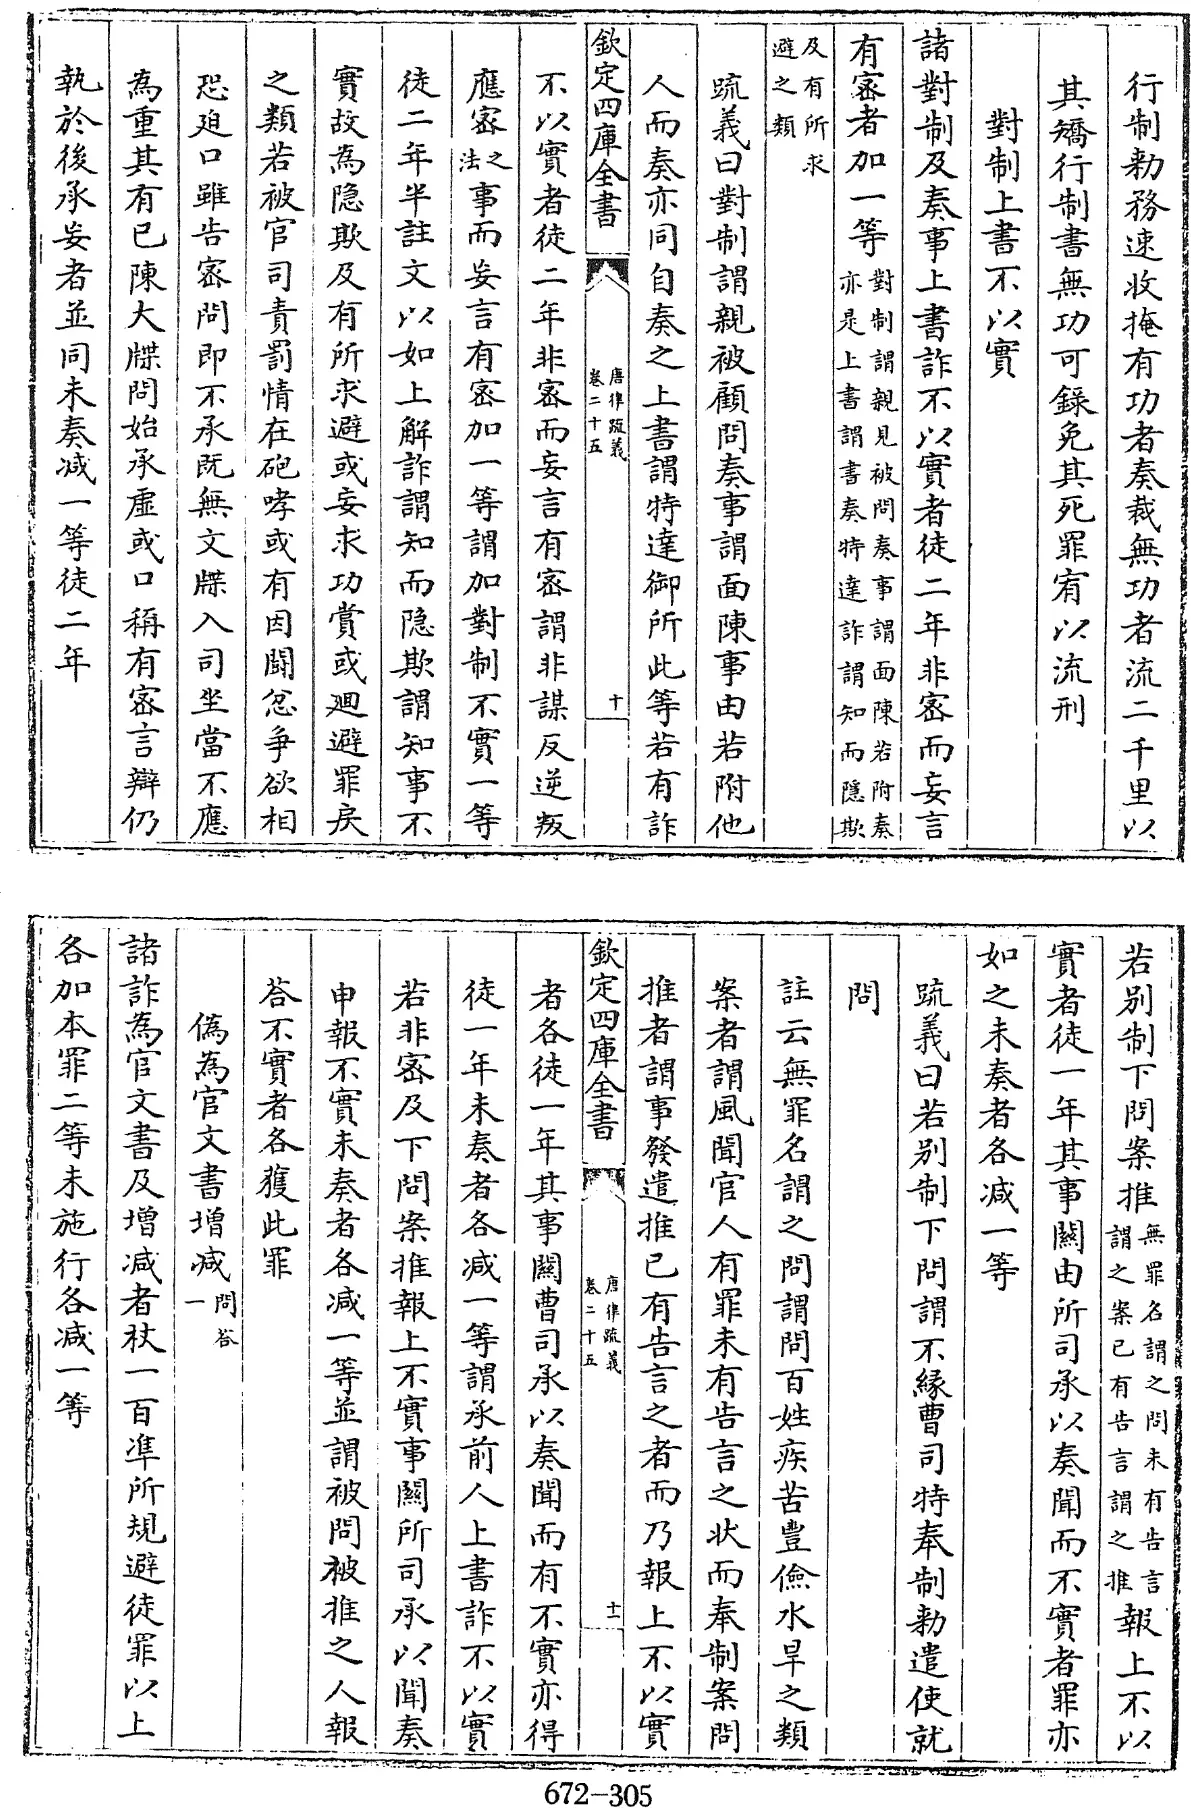 行制勅務速收掩有功者奏裁無功者流二千里以
其矯行制書無功可錄免其死罪宥以流刑
對制上書不以實
諸對制及奏事上書詐不以實者徒二年非宻而妄言
有宻者加一等對制謂親見被問奏事謂面陳若附奏
亦是上書謂書奏特達詐謂知而隱欺
及有所求
避之類
疏義曰對制謂親被顧問奏事謂面陳事由若附他
人而奏亦同自奏之上書謂特達御所此等若有詐
欽定四庫全書
唐律疏義
卷二十五
十
不以實者徒二年非宻而妄言有宻謂非謀反逆叛
應宻之
法事而妄言有宻加一等謂加對制不實一等
徒二年半註文以如上解詐謂知而隐欺謂知事不
實故為隐欺及有所求避或妄求功賞或廻避罪戾
之類若被官司責罰情在砲哮或有因鬭忿争欲相
恐廹口雖告宻問即不承既無文牒入司坐當不應
為重其有已陳大牒問始承虛或口稱有宻言辯仍
執於後承妄者並同未奏减一等徒二年
若别制下問案推無罪名謂之問未有告言
謂之案已有告言謂之推報上不以
實者徒一年其事關由所司承以奏聞而不實者罪亦
如之未奏者各减一等
疏義曰若别制下問謂不縁曹司特奉制勅遣使就
問
註云無罪名謂之問謂問百姓疾苦豐儉水旱之類
案者謂風聞官人有罪未有告言之狀而奉制案問
推者謂事發遣推已有告言之者而乃報上不以實
欽定四庫全書
唐律疏義
卷二十五
十一
者各徒一年其事關曹司承以奏聞而有不實亦得
徒一年未奏者各减一等謂承前人上書詐不以實
若非宻及下問案推報上不實事關所司承以聞奏
申報不實未奏者各减一等並謂被問被推之人報
答不實者各獲此罪
偽為官文書增减問答
一
諸詐為官文書及增减者杖一百凖所規避徒罪以上
各加本罪二等未施行各减一等
672-305